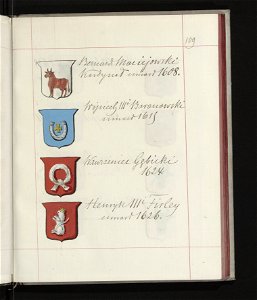 109
Bernard Maciejowski
Kardynał umarł 1608.
Wojciech Baranowski
umarł 1615
Wawrzeniec Gębicki
1624
Henryk Firley
umarł 1626.